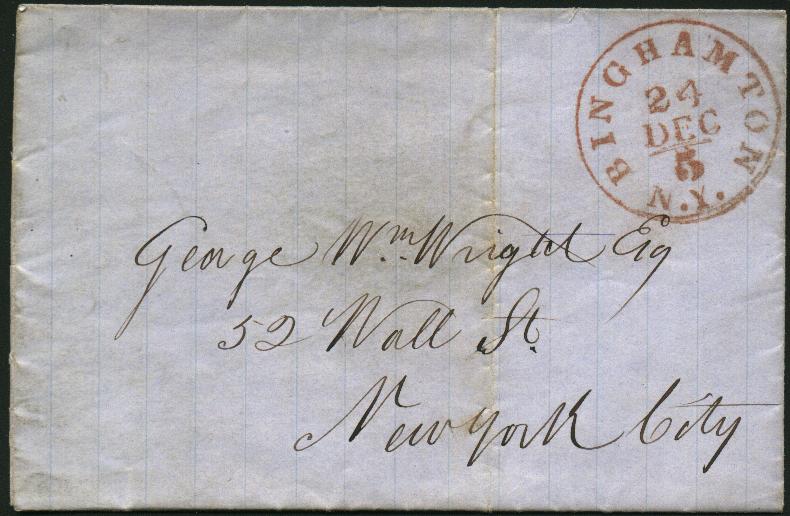 BINGHAMTON
24
DEC
5
N.Y.
George Wm. Wright Esq
52 Wall St.
New York City